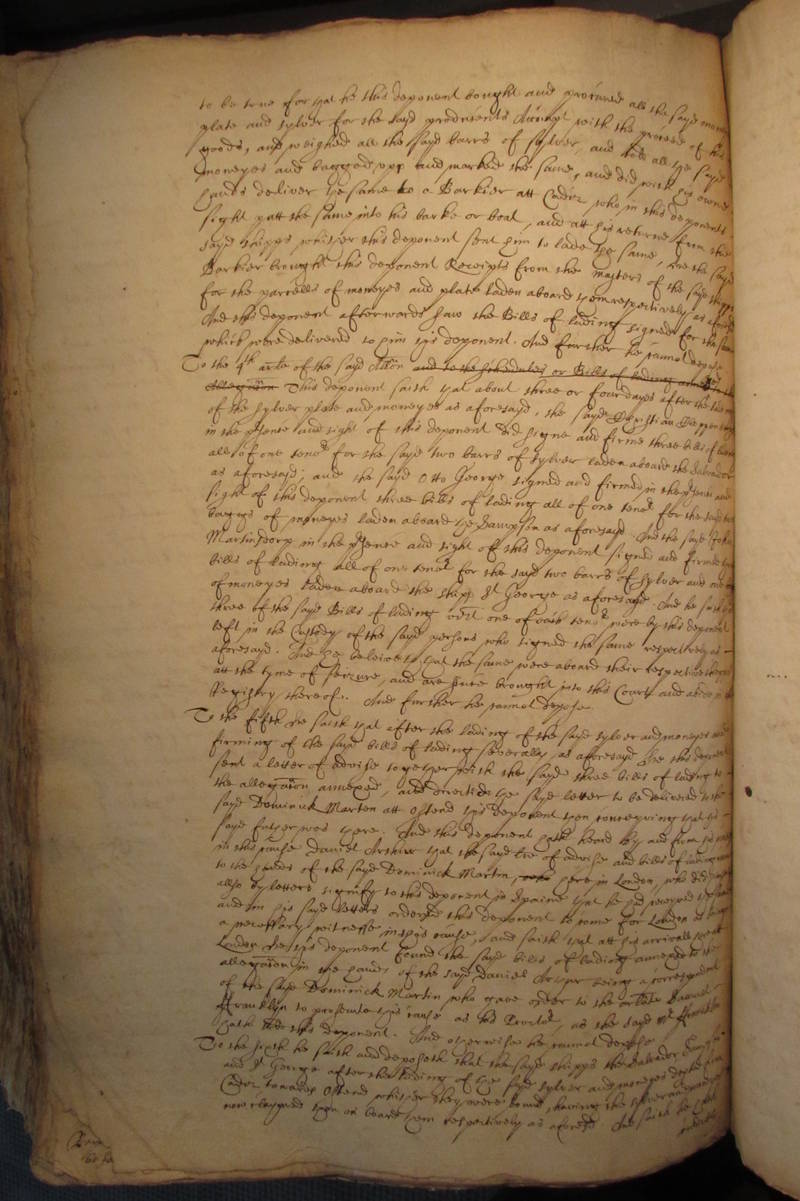 to be true for that he this deponent bought and procured all the sayd
plate and sylver for the sayd producents Accompt with the proceed of his
goods, and weighed all the sayd barrs of sylver, and told all the sayd
moneyes and bagged upp and marked the same, and did with his owne
hands deliver the same to a Barkier att Cadiz who in this deponents
sight putt the same into his barke or boat, and att his returne from the
sayd shipps whither this deponent sent him to lade the same, the sayd
Barkier brought this deponent Receipts from the masters of the sayd shipps
for the parcells of moneyes and plate laden aboard them respectively as aforesd
And this deponent afterwards saw the Bills of lading signed for the same
which were delivered to him this deponent. And further he cannot depose
To the 4th arle of the sayd Allon and to the schedules or Bills of lading
Allegation This deponent saith that about three or four dayes after the
of the sylver plate and moneyes as aforesayd, the sayd Christian
in the presence and sight of this deponent did signe and firme three bills of lading
all of one tenor for the sayd two barrs of sylver laden aboard the Salvador
as aforesayd; and the sayd Otto George signed and firmed in the presence and
sight of this deponent three bills of lading all of one tenor for the sayd
baggs of moneyes laden aboard the Sampson as aforesayd And the sayd
Martin in the presence and sight of this deponent signed and firmed
bills of lading all of one tenor for the sayd two barrs of sylver and
of moneyes laden aboard the shipp St George as aforesayd. And he saith
three of the sayd Bills of lading one of each tenor were by this deponent
left in the Custody of the sayd persons who signed the same respectively as
aforesayd. And he beleiveth that the same were aboard their respective shipps
att the tyme of seizure, and are since brought into this Court and
Registry thereof. And further he cannot depose
To the fifth he saith that after the lading of the sayd sylver and moneyes and
firming of the sayd bills of lading severally as aforesayd he this deponent
sent a letter of advise together with the sayd three bills of lading to
the allegation annexed, and directed the sayd letter to be delivered to the
sayd Dominick Marten att Ostend this deponent then conceiving that his
sayd father was there. And this deponent hath heard by and from
in this cause Daniel Arthur that the sayd lre of advise and bills of lading came
to the hands of the sayd Dominick Martin, here in London, who did
allso by letters signify to this deponent in Spaine that he had received the same
and in his sayd letters ordered this deponent to come for London as being
a necessary witnesse in this cause, and saith that att his arrivall
London he this deponent found the sayd bills of lading annexed to the
allegation in the hands of the sayd Daniel Arthur being a correspondent
of the sayd Dominick Martin who gave order to the arlate Samuel
Francklyn to prosecute this cause as his Proctor, as the sayd Mr Francklin
hath told this deponent. And otherwise he cannot depose
To the sixth he saith and deposeth that the sayd shipps the Salvador, Sampson
and St George after the lading of the sayd sylver and moneyes departed from
Cadiz towards Ostend whither they were bound, having the sylver and moneyes
now claymed then on board them respectively as aforesd. And saith he